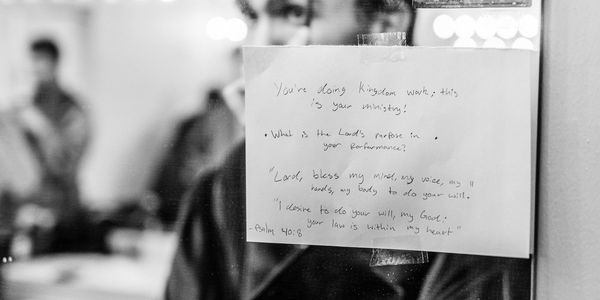 You're doing Kingdom work; this
is your ministry!
• What is the Lord's purpose in •
your performance?
"Lord, bless my mind, my voice, my
hands, my body to do your will."
"I desire to do your will, my God;
your law is within my heart"
-Psalm 40:8